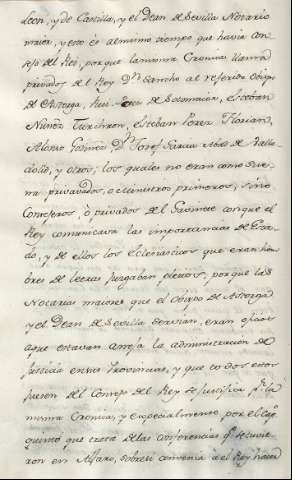 Leon, y de Castilla, y el Dean de Sevilla Notario
maior, y esto es al mismo tiempo que havia Con-
sejo del Rei, porque la misma Cronica llama
privados del Rey Dn. Sancho al referido Obispo
de Astorga, Rui de Sotomaior, Esteban
Nuñez Turchron, Esteban Perez Florian,
Alonso Dn. Josef Garcia Abad de Valla-
dolid, y otros; los quales no eran como sue-
na privados, o ministros primeros, sino
Consejeros, ò privados del Gavinete con que el
Rey comunicava las importancias de Esta-
do, y de ellos los Eclesiasticos que eran hom-
bres de letras juzgaban pleitos, porque las
Notarias maiores que el Obispo de Astorga
y el Dean de Sevilla servian, eran oficios
a que estavan aneja la administracion de
Justicia en sus Provincias, y que todos estos
fuesen del Consejo del Rey se justifica pr. la
misma Cronica, y especialmente por el Cap.
quinto que trata de las conferencias qe. se tuvie-
ron en Alfaro, sobre si convenia à el Rey hacer